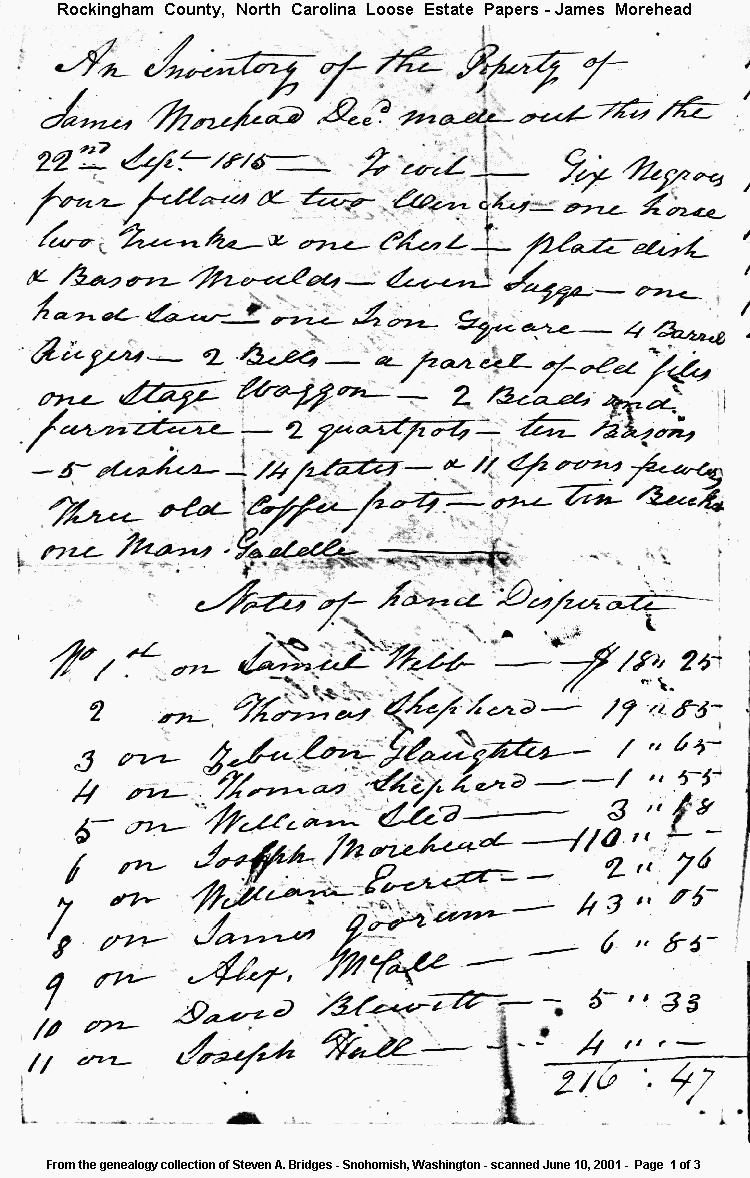 Rockingham County, North Carolina Loose Estate Papers - James Morehead
An Inventory of the Poperty of
James Morehead Decd. made out this the
22nd Sept. 1815 — To wit — Six Negroes
four fellows & two Wenches — one horse
two Trunks & one Chest — plate dish
& Bason Moulds — Seven Juggs — one
hand Saw — one Iron Square — 4 Barrel
Ringers — 2 Bells — a parcel of old files
one Stage Waggon — 2 Beads and
furniture — 2 quart pots — ten Basons
— 5 dishes — 14 plates — & 11 Spoons
Three old Coffee pots — one tin
one Mans Saddle —
Notes of hand Disperate
No 1st on Samuel Webb — $ 18 " 25
2 on Thomas Shepherd — 19 " 85
3 on Zebulon Slaughter — 1 " 65
4 on Thomas Shepherd — 1 " 55
5 on William Sled — 3 " 18
6 on Joseph Morehead — 110 " - -
7 on William Everett - - 2 " 76
8 on James Goorum — 43 " 05
9 on Alex. McCall — — 6 " 85
10 on David Blewitt — - 5 " 33
11 on Joseph Hall — - - - 4 " " -
216 : 47
From the genealogy collection of Steven A. Bridges - Snohomish, Washington - scanned June 10, 2001 - Page 1 of 3